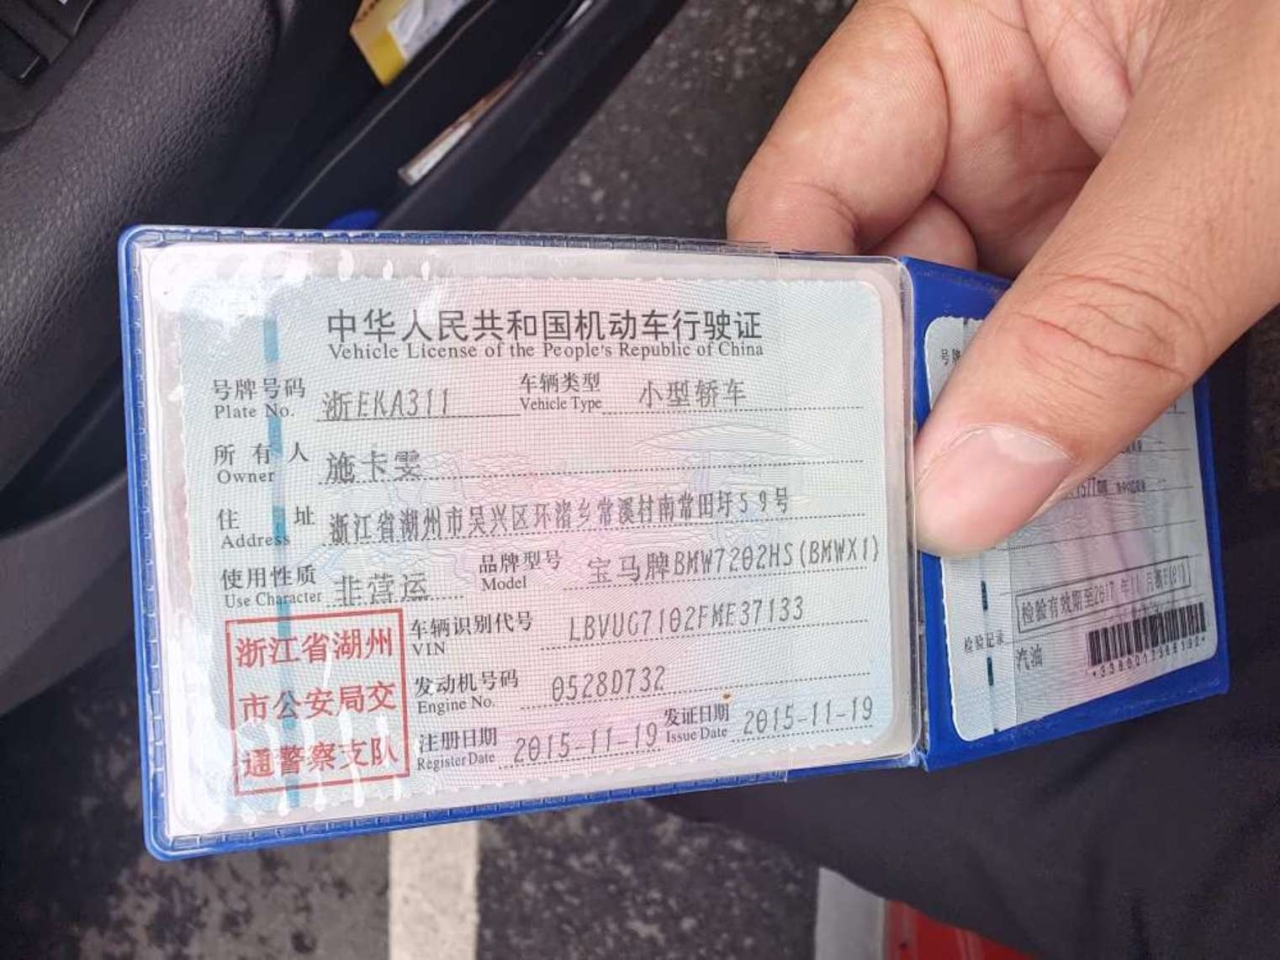 中华人民共和国机动车行驶证
Vehicle License of the People's Republic of China
号牌号码 浙EKA311 车辆类型 小型轿车
Plate No. Vehicle Type
所有人 施卡雯
Owner
住址 浙江省湖州市吴兴区环渚乡常溪村南常田圩59号
Address
使用性质 非营运 品牌型号 宝马牌BMW7202HS(BMWX1)
Use Character Model
浙江省湖州
市公安局交
通警察支队
车辆识别代号 LBVUG7102FME37133
VIN
发动机号码 0528D732
Engine No.
注册日期 2015-11-19 发证日期 2015-11-19
Register Date Issue Date
号牌
检验有效期至2017年11月
检验记录
汽油